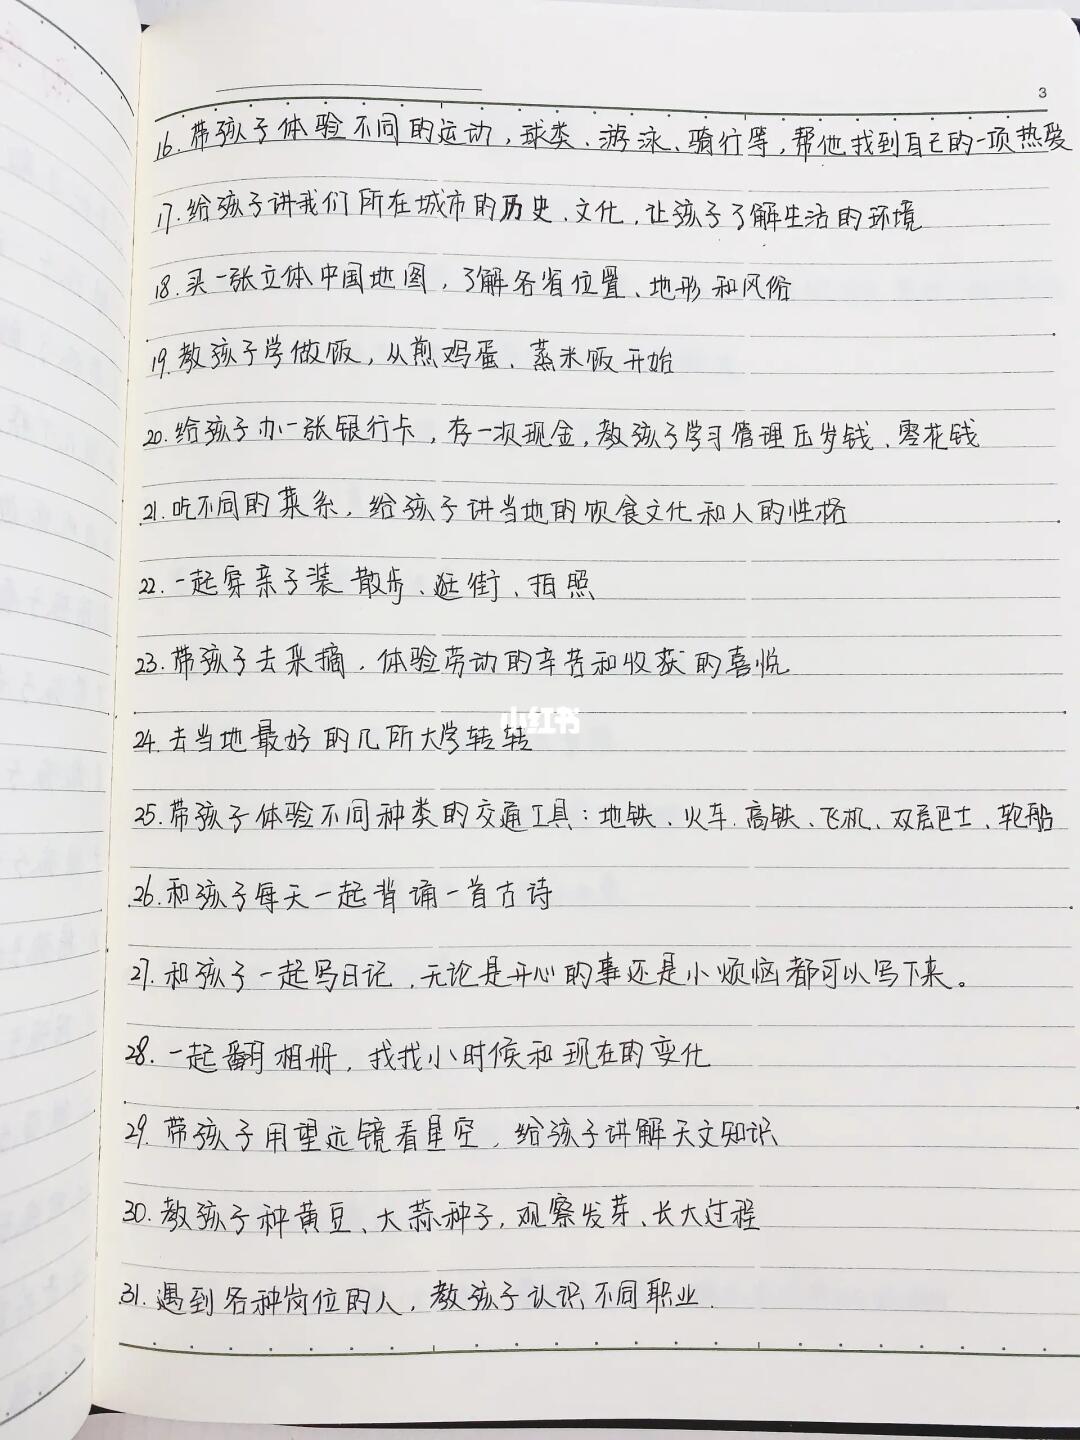 3
16.带孩子体验不同的运动，球类、游泳、骑行等，帮他找到自己的一项热爱
17.给孩子讲我们所在城市的历史、文化，让孩子了解生活的环境
18.买一张立体中国地图，了解各省位置、地形和风俗
19.教孩子学做饭，从煎鸡蛋、蒸米饭开始
20.给孩子办一张银行卡，存一次现金，教孩子学习管理压岁钱、零花钱
21.吃不同的菜系，给孩子讲当地的饮食文化和人的性格
22.一起穿亲子装散步、逛街、拍照
23.带孩子去采摘，体验劳动的辛苦和收获的喜悦
小红书
24.去当地最好的几所大学转转
25.带孩子体验不同种类的交通工具：地铁、火车、高铁、飞机、双层巴士、轮船
26.和孩子每天一起背诵一首古诗
27.和孩子一起写日记，无论是开心的事还是小烦恼都可以写下来。
28.一起翻相册，找找小时候和现在的变化
29.带孩子用望远镜看星空，给孩子讲解天文知识
30.教孩子种黄豆、大蒜种子，观察发芽、长大过程
31.遇到各种岗位的人，教孩子认识不同职业.